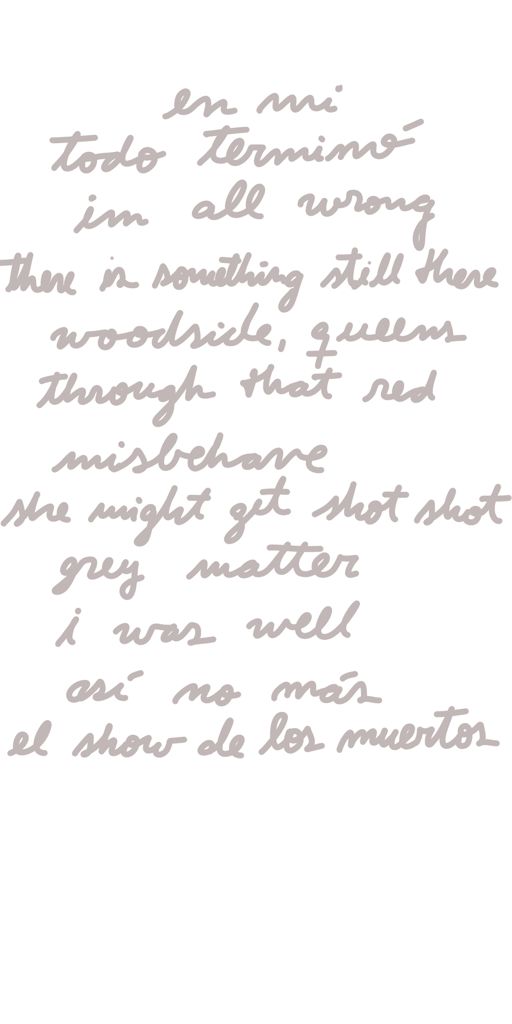 en mi
todo terminó
im all wrong
there is something still there
woodside, queens
through that red
misbehave
she might get shot shot
grey matter
i was well
así no más
el show de los muertos